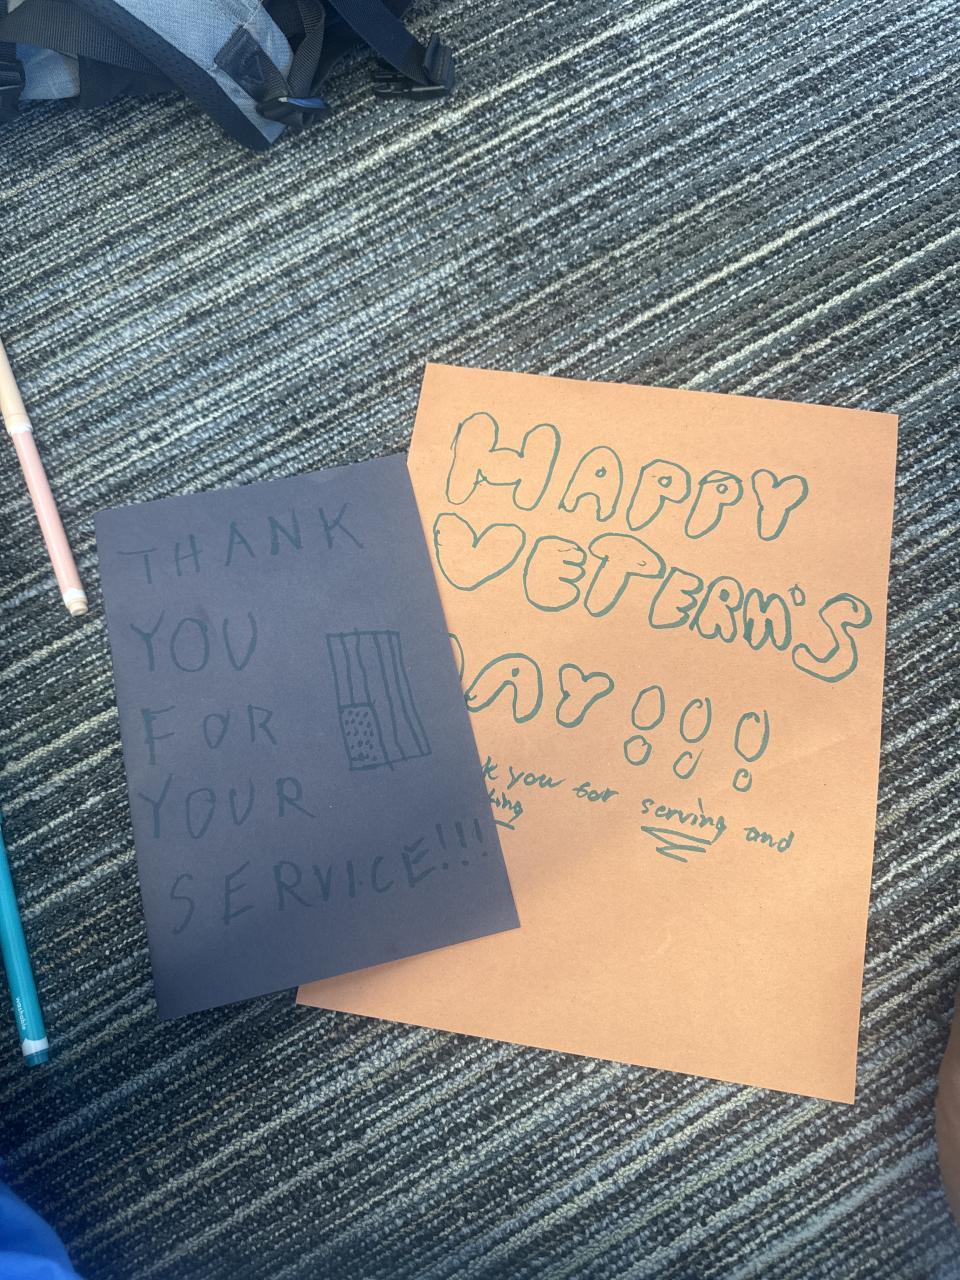 THANK
YOU
FOR
YOUR
SERVICE!!!
HAPPY
VETERM'S
AY!!!
k you for serving and
king
washable